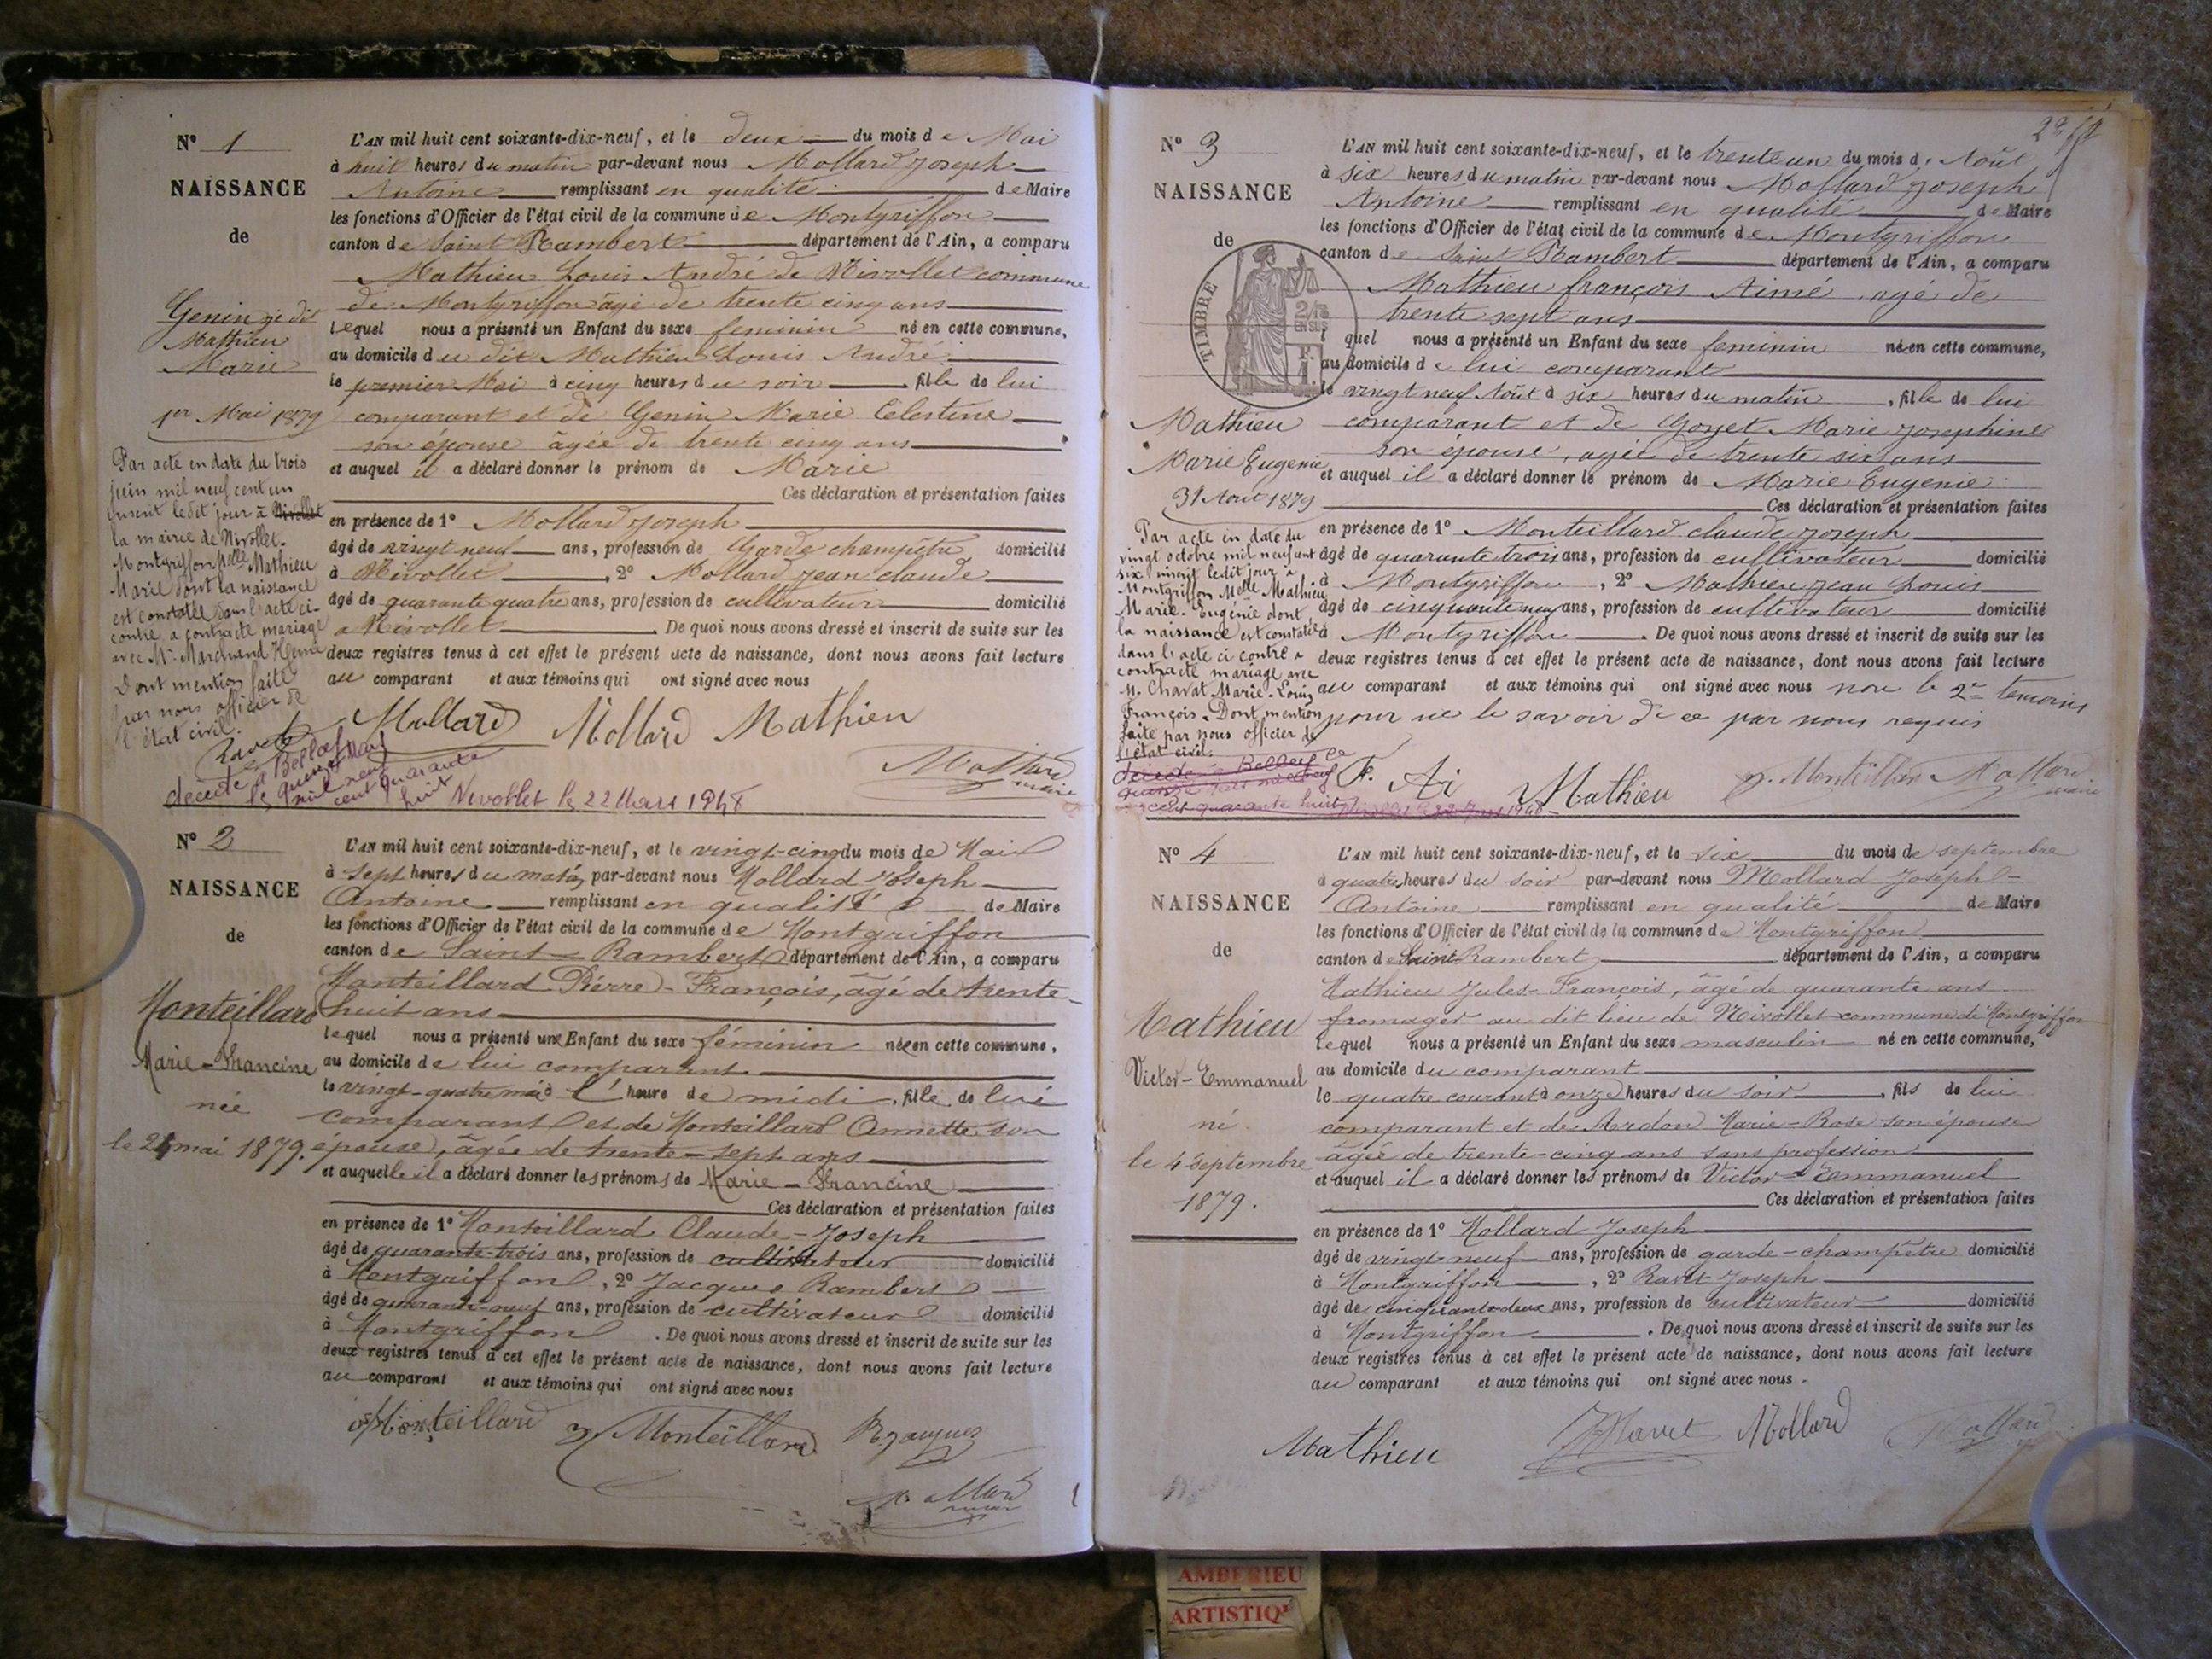 N° 1
NAISSANCE
de
Genin je dit
Mathieu
Marie
1er Mai 1879
Par acte en date du trois
juin mil neuf cent un
inscrit ledit jour à Nivollet
la mairie de Nivollet-
Montgriffon Melle Mathieu
Marie dont la naissance
est constatée dans l'acte ci-
contre a contracté mariage
avec Mr Marchand
Dont mention faite
par nous officier de
l'état civil.
Ravet
décédée à Belley
le quinze Mars
mil neuf
cent quarante
huit Nivollet le 22 Mars 1948
L'AN mil huit cent soixante-dix-neuf, et le deux du mois de Mai
à huit heures du matin par-devant nous Mollard Joseph
Antoine remplissant en qualité de Maire
les fonctions d'Officier de l'état civil de la commune de Montgriffon
canton de Saint Rambert département de l'Ain, a comparu
Mathieu Louis André de Nivollet commune
de Montgriffon âgé de trente cinq ans
lequel nous a présenté un Enfant du sexe feminin né en cette commune,
au domicile du dit Mathieu Louis André
le premier Mai à cinq heures du soir, fille de lui
comparant et de Genin Marie Celestine
son épouse âgée de trente cinq ans
et auquel il a déclaré donner le prénom de Marie
Ces déclaration et présentation faites
en présence de 1° Mollard Joseph
âgé de vingt neuf ans, profession de Garde champêtre domicilié
à Nivollet, 2° Mollard Jean claude
âgé de quarante quatre ans, profession de cultivateur domicilié
à Nivollet. De quoi nous avons dressé et inscrit de suite sur les
deux registres tenus à cet effet le présent acte de naissance, dont nous avons fait lecture
au comparant et aux témoins qui ont signé avec nous
Mollard Mollard Mathieu
Mollard
maire
N° 2
NAISSANCE
de
Monteillard
Marie-Francine
née
le 24 mai 1879.
L'AN mil huit cent soixante-dix-neuf, et le vingt-cinq du mois de Mai
à sept heures du matin, par-devant nous Mollard Joseph
Antoine remplissant en qualité de Maire
les fonctions d'Officier de l'état civil de la commune de Montgriffon
canton de Saint-Rambert département de l'Ain, a comparu
Monteillard Pierre-François, âgé de trente-
huit ans
lequel nous a présenté une Enfant du sexe féminin née en cette commune,
au domicile de lui comparant
le vingt-quatre mai à l'heure de midi, fille de lui
comparant et de Monteillard Annette son
épouse, âgée de trente-sept ans
et auquelle il a déclaré donner les prénoms de Marie-Francine
Ces déclaration et présentation faites
en présence de 1° Monteillard Claude-Joseph
âgé de quarante-trois ans, profession de cultivateur domicilié
à Montgriffon, 2° Jacques Rambert
âgé de quarante-neuf ans, profession de cultivateur domicilié
à Montgriffon. De quoi nous avons dressé et inscrit de suite sur les
deux registres tenus à cet effet le présent acte de naissance, dont nous avons fait lecture
au comparant et aux témoins qui ont signé avec nous
Monteillard J Monteillard R. Jacques
Mollard
maire
N° 3
NAISSANCE
de
TIMBRE
2/10
EN SUS
Mathieu
Marie Eugenie
31 Aout 1879
Par acte en date du
vingt octobre mil neuf cent
six inscrit ledit jour à
Montgriffon Melle Mathieu
Marie-Eugénie dont
la naissance est constatée
dans l'acte ci contre a
contracté mariage avec
M. Chavat Marie-Louis
François. Dont mention
faite par nous officier de
l'état civil.
décédée à Belley le
quinze Mars mil neuf
cent quarante huit Nivollet le 22 Mars 1948
L'AN mil huit cent soixante-dix-neuf, et le trente un du mois d'Août
à six heures du matin par-devant nous Mollard Joseph
Antoine remplissant en qualité de Maire
les fonctions d'Officier de l'état civil de la commune de Montgriffon
canton de Saint Rambert département de l'Ain, a comparu
Mathieu françois Aimé agé de
trente sept ans
lquel nous a présenté un Enfant du sexe feminin né en cette commune,
au domicile de lui comparant
le vingt neuf Août à six heures du matin, fille de lui
comparant et de Goyet Marie Josephine
son épouse, agée de trente six ans
et auquel il a déclaré donner le prénom de Marie Eugenie
Ces déclaration et présentation faites
en présence de 1° Monteillard claude joseph
âgé de quarante trois ans, profession de cultivateur domicilié
à Montgriffon, 2° Mathieu jean Louis
âgé de cinquante neuf ans, profession de cultivateur domicilié
à Montgriffon. De quoi nous avons dressé et inscrit de suite sur les
deux registres tenus à cet effet le présent acte de naissance, dont nous avons fait lecture
au comparant et aux témoins qui ont signé avec nous non le 2e temoins
pour ne le savoir de ce par nous requis
F. Ai Mathieu J. Monteillard Mollard
maire
N° 4
NAISSANCE
de
Mathieu
Victor-Emmanuel
né
le 4 septembre
1879.
L'AN mil huit cent soixante-dix-neuf, et le six du mois de septembre
à quatre heures du soir par-devant nous Mollard Joseph-
Antoine remplissant en qualité de Maire
les fonctions d'Officier de l'état civil de la commune de Montgriffon
canton de Saint Rambert département de l'Ain, a comparu
Mathieu Jules-François, âgé de quarante ans
fromager au dit lieu de Nivollet commune de Montgriffon
lequel nous a présenté un Enfant du sexe masculin né en cette commune,
au domicile du comparant
le quatre courant à onze heures du soir, fils de lui
comparant et de Ardon Marie-Rose son épouse
âgée de trente-cinq ans sans profession
et auquel il a déclaré donner les prénoms de Victor-Emmanuel
Ces déclaration et présentation faites
en présence de 1° Mollard Joseph
âgé de vingt-neuf ans, profession de garde-champêtre domicilié
à Montgriffon, 2° Ravet Joseph
âgé de cinquante-deux ans, profession de cultivateur domicilié
à Montgriffon. De quoi nous avons dressé et inscrit de suite sur les
deux registres tenus à cet effet le présent acte de naissance, dont nous avons fait lecture
au comparant et aux témoins qui ont signé avec nous.
Mathieu J Ravet Mollard Mollard
AMBERIEU
ARTISTIQ